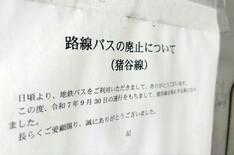 路線バスの廃止について
（猪谷線）
日頃より、地鉄バスをご利用いただきまして、ありがとうございます。
この度、令和7年9月30日の運行をもちまして、猪谷線を廃止
ました。
長らくご愛顧賜り、誠にありがとうございました。
記